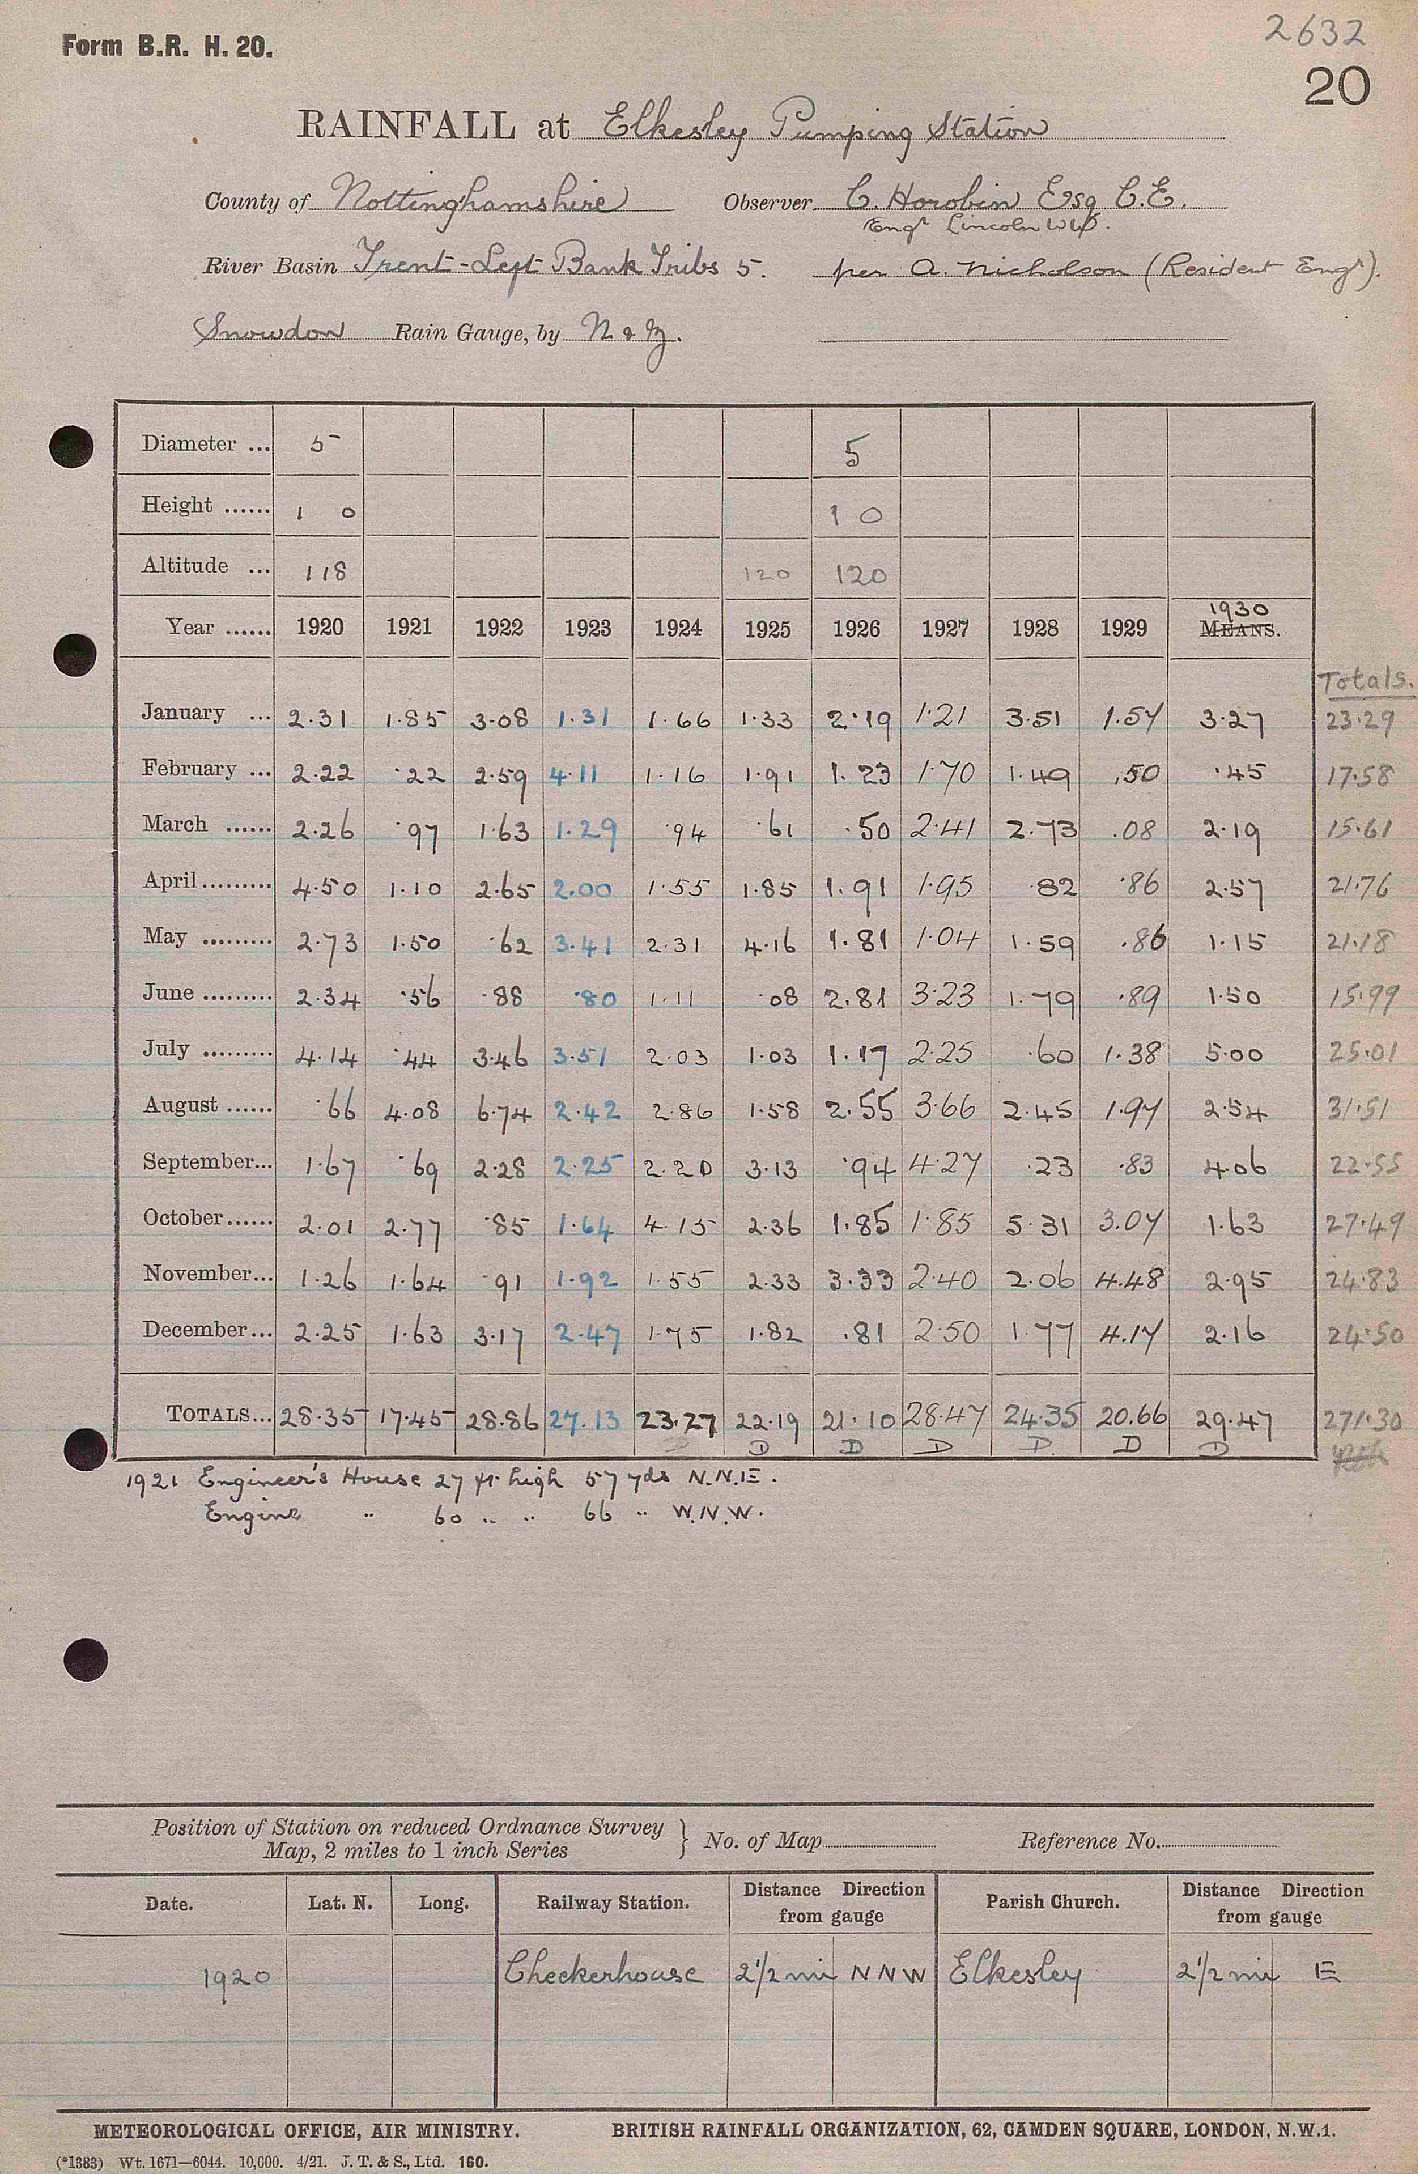 2632
Form B.R. H. 20.
20
RAINFALL at Elkesley Pumping Station
County of Nottinghamshire Observer C. Horobin Esq C.E.
Engr Lincoln W.W.
River Basin Trent - Left Bank Tribs 5. per A. Nicholson (Resident Engr).
Snowdon Rain Gauge, by N & Z.
Diameter ... 5 5
Height ...... 1 0 1 0
Altitude ... 118 120 120
Year ...... 1920 1921 1922 1923 1924 1925 1926 1927 1928 1929 1930 MEANS.
Totals.
January ... 2.31 1.85 3.08 1.31 1.66 1.33 2.19 1.21 3.51 1.57 3.27 23.29
February ... 2.22 .22 2.59 4.11 1.16 1.91 1.23 1.70 1.49 .50 .45 17.58
March ...... 2.26 .97 1.63 1.29 .94 .61 .50 2.41 2.73 .08 2.19 15.61
April ......... 4.50 1.10 2.65 2.00 1.55 1.85 1.91 1.95 .82 .86 2.57 21.76
May ......... 2.73 1.50 .62 3.41 2.31 4.16 1.81 1.04 1.59 .86 1.15 21.18
June ......... 2.34 .56 .88 .80 1.11 .08 2.81 3.23 1.79 .89 1.50 15.99
July ......... 4.14 .44 3.46 3.51 2.03 1.03 1.17 2.25 .60 1.38 5.00 25.01
August ...... .66 4.08 6.74 2.42 2.86 1.58 2.55 3.66 2.45 1.97 2.54 31.51
September... 1.67 .69 2.28 2.25 2.20 3.13 .94 4.27 .23 .83 4.06 22.55
October...... 2.01 2.77 .85 1.64 4.15 2.36 1.85 1.85 5.31 3.07 1.63 27.49
November... 1.26 1.64 .91 1.92 1.55 2.33 3.33 2.40 2.06 4.48 2.95 24.83
December... 2.25 1.63 3.17 2.47 1.75 1.82 .81 2.50 1.77 4.17 2.16 24.50
TOTALS... 28.35 17.45 28.86 27.13 23.27 22.19 21.10 28.47 24.35 20.66 29.47 271.30
D D D D D D D
1921 Engineer's House 27 ft high 57 yds N.N.E.
Engine " 60 " " 66 " W.N.W.
Position of Station on reduced Ordnance Survey
Map, 2 miles to 1 inch Series } No. of Map Reference No.
Date. Lat. N. Long. Railway Station. Distance Direction from gauge Parish Church. Distance Direction from gauge
1920 Checkerhouse 2 1/2 mi N N W Elkesley 2 1/2 mi E
METEOROLOGICAL OFFICE, AIR MINISTRY. BRITISH RAINFALL ORGANIZATION, 62, CAMDEN SQUARE, LONDON, N.W.1.
(*1383) Wt. 1671—6044. 10,000. 4/21. J. T. & S., Ltd. 160.